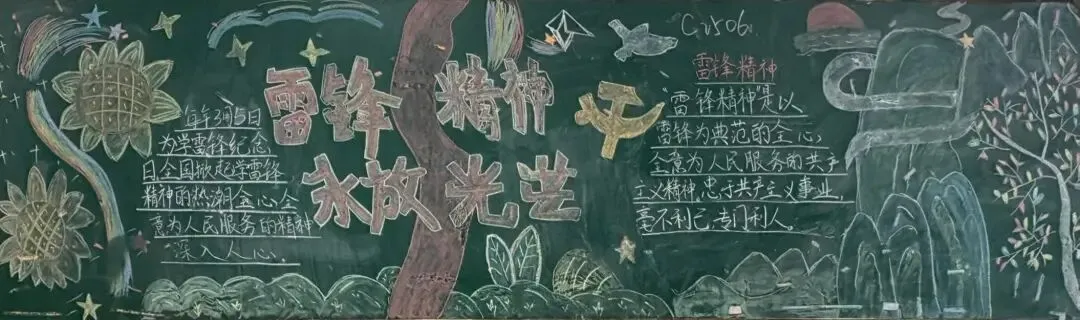 雷锋精神
永放光芒
每年3月5日
为学雷锋纪念
日全国掀起学雷锋
精神的热潮全心全
意为人民服务的精神
深入人心.
C2506.
雷锋精神
"雷锋精神是以
雷锋为典范的全心,
全意为人民服务的共产
主义精神,忠于共产主义事业,
毫不利己,专门利人。